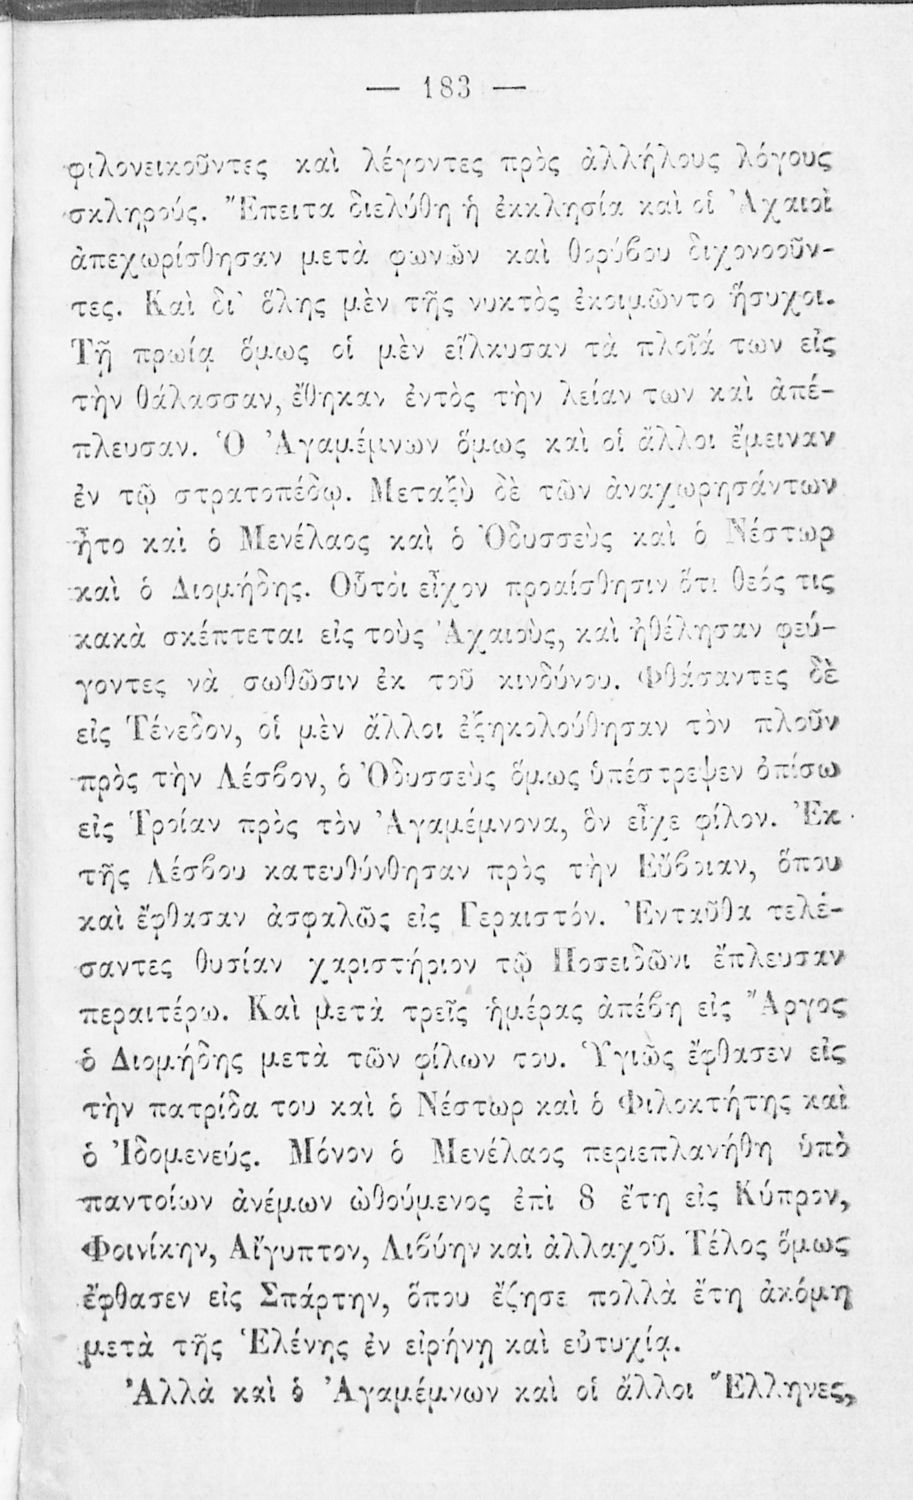 — 183 —
φιλονεικοῦντες καὶ λέγοντες πρὸς ἀλλήλους λόγους
σκληρούς. Ἔπειτα διελύθη ἡ ἐκκλησία καὶ οἱ Ἀχαιοὶ
ἀπεχωρίσθησαν μετὰ φωνῶν καὶ θορύβου διχονοοῦν-
τες. Καὶ δι' ὅλης μὲν τῆς νυκτὸς ἐκοιμῶντο ἥσυχοι.
Τῇ πρωίᾳ ὅμως οἱ μὲν εἵλκυσαν τὰ πλοῖά των εἰς
τὴν θάλασσαν, ἔθηκαν ἐντὸς τὴν λείαν των καὶ ἀπέ-
πλευσαν. Ὁ Ἀγαμέμνων ὅμως καὶ οἱ ἄλλοι ἔμειναν
ἐν τῷ στρατοπέδῳ. Μεταξὺ δὲ τῶν ἀναχωρησάντων
ἦτο καὶ ὁ Μενέλαος καὶ ὁ Ὀδυσσεὺς καὶ ὁ Νέστωρ
καὶ ὁ Διομήδης. Οὗτοι εἶχον προαίσθησιν ὅτι θεός τις
κακὰ σκέπτεται εἰς τοὺς Ἀχαιοὺς, καὶ ἠθέλησαν φεύ-
γοντες νὰ σωθῶσιν ἐκ τοῦ κινδύνου. Φθάσαντες δὲ
εἰς Τένεδον, οἱ μὲν ἄλλοι ἐξηκολούθησαν τὸν πλοῦν
πρὸς τὴν Λέσβον, ὁ Ὀδυσσεὺς ὅμως ὑπέστρεψεν ὀπίσω
εἰς Τροίαν πρὸς τὸν Ἀγαμέμνονα, ὃν εἶχε φίλον. Ἐκ
τῆς Λέσβου κατευθύνθησαν πρὸς τὴν Εὔβοιαν, ὅπου
καὶ ἔφθασαν ἀσφαλῶς εἰς Γεραιστόν. Ἐνταῦθα τελέ-
σαντες θυσίαν χαριστήριον τῷ Ποσειδῶνι ἔπλευσαν
περαιτέρω. Καὶ μετὰ τρεῖς ἡμέρας ἀπέβη εἰς Ἄργος
ὁ Διομήδης μετὰ τῶν φίλων του. Ὑγιὼς ἔφθασεν εἰς
τὴν πατρίδα του καὶ ὁ Νέστωρ καὶ ὁ Φιλοκτήτης καὶ
ὁ Ἰδομενεύς. Μόνον ὁ Μενέλαος περιεπλανήθη ὑπὸ
παντοίων ἀνέμων ὠθούμενος ἐπὶ 8 ἔτη εἰς Κύπρον,
Φοινίκην, Αἴγυπτον, Λιβύην καὶ ἀλλαχοῦ. Τέλος ὅμως
ἔφθασεν εἰς Σπάρτην, ὅπου ἔζησε πολλὰ ἔτη ἀκόμη
μετὰ τῆς Ἑλένης ἐν εἰρήνῃ καὶ εὐτυχίᾳ.
Ἀλλὰ καὶ ὁ Ἀγαμέμνων καὶ οἱ ἄλλοι Ἕλληνες,